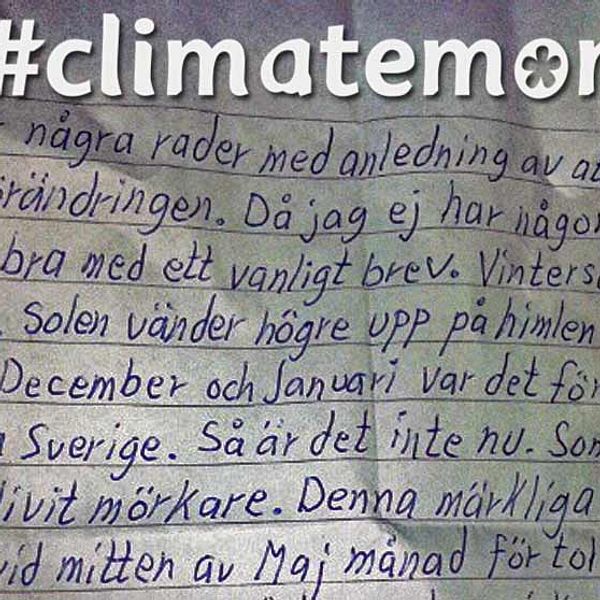 #climatemor
några rader med anledning av at
örändringen. Då jag ej har någon
bra med ett vanligt brev. Vinters
. Solen vänder högre upp på himlen
December och Januari var det för
Sverige. Så är det inte nu. Som
livit mörkare. Denna märkliga
vid mitten av Maj månad för tol